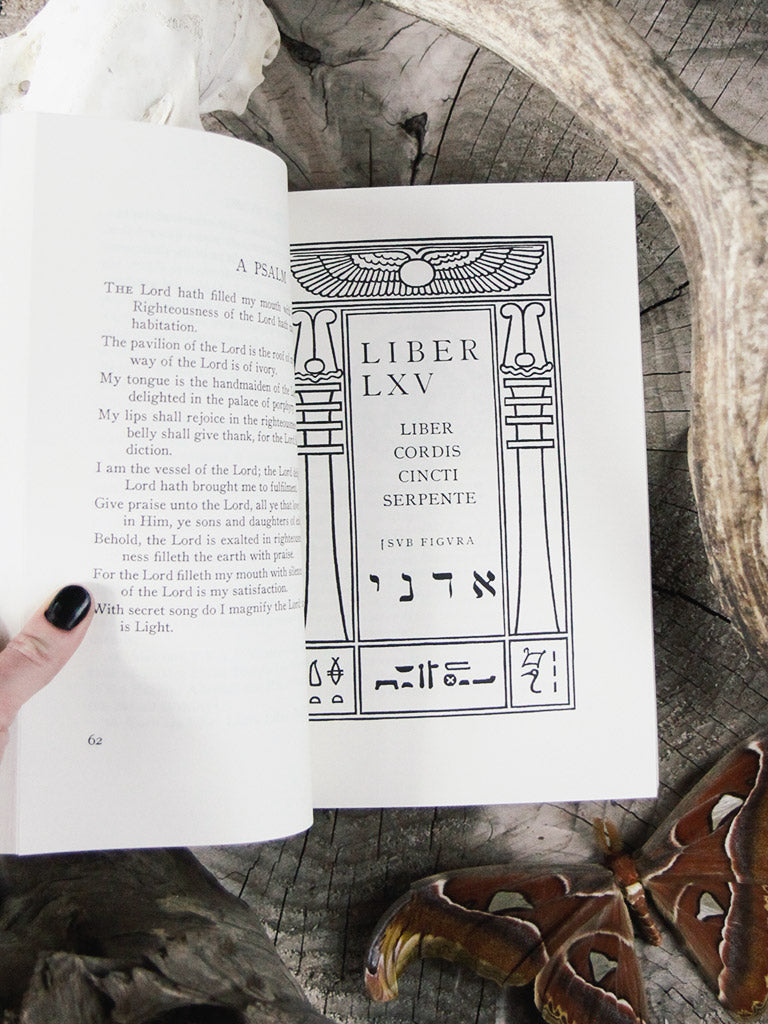 A PSALM
THE Lord hath filled my mouth
Righteousness of the Lord hath
habitation.
The pavilion of the Lord is the roof
way of the Lord is of ivory.
My tongue is the handmaiden of the
delighted in the palace of
My lips shall rejoice in the
belly shall give thank, for the Lord
diction.
I am the vessel of the Lord; the Lord
Lord hath brought me to
Give praise unto the Lord, all ye that
in Him, ye sons and daughters of
Behold, the Lord is exalted in righteous-
ness filleth the earth with praise.
For the Lord filleth my mouth with
of the Lord is my satisfaction.
With secret song do I magnify the Lord,
is Light.
62
LIBER
LXV
LIBER
CORDIS
CINCTI
SERPENTE
SVB FIGVRA
אדני